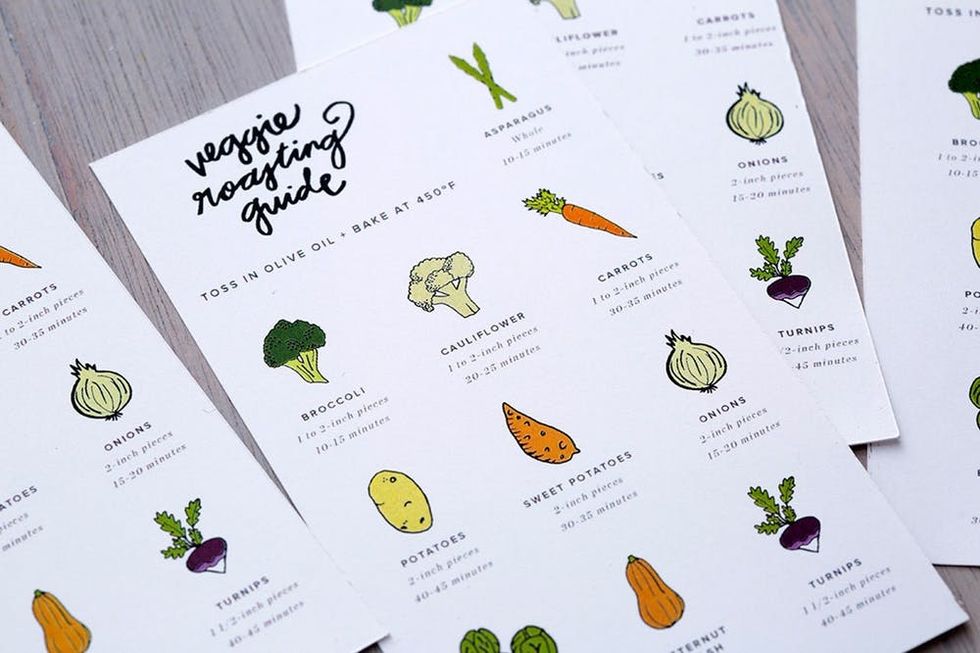 veggie
roasting
guide
TOSS IN OLIVE OIL + BAKE AT 450°F
ASPARAGUS
Whole
10-15 minutes
BROCCOLI
1 to 2-inch pieces
10-15 minutes
CAULIFLOWER
1 to 2-inch pieces
20-25 minutes
CARROTS
1 to 2-inch pieces
30-35 minutes
POTATOES
2-inch pieces
40-45 minutes
SWEET POTATOES
2-inch pieces
30-35 minutes
ONIONS
2-inch pieces
15-20 minutes
TURNIPS
1 1/2-inch pieces
40-45 minutes
CARROTS
1 to 2-inch pieces
30-35 minutes
ONIONS
2-inch pieces
15-20 minutes
TURNIPS
1 1/2-inch pieces
40-45 minutes
LIFLOWER
inch pieces
minutes
CARROTS
1 to 2-inch pieces
30-35 minutes
ONIONS
2-inch pieces
15-20 minutes
TURNIPS
/2-inch pieces
-45 minutes
TOSS IN